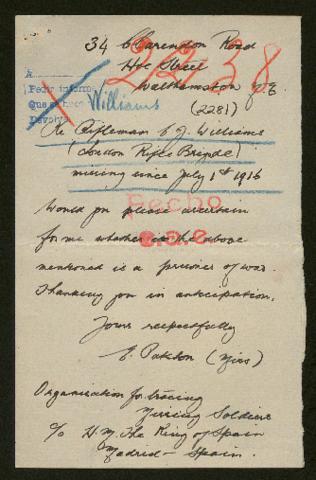 34 Clarendon Road
Hoe Street
Walthamstow
22738
A
Pedir inform
Que se hace
Devolv
Williams
(2281)
Re Rifleman C J. Williams
(London Rifle Brigade)
missing since July 1st 1916
Would you please ascertain
for me whether the above
mentioned is a prisoner of war.
Thanking you in anticipation.
Hecho
s.a.e
Yours respectfully
(Miss)
Organisation for tracing
Missing Soldiers
c/o H.M. The King of Spain
Madrid - Spain.